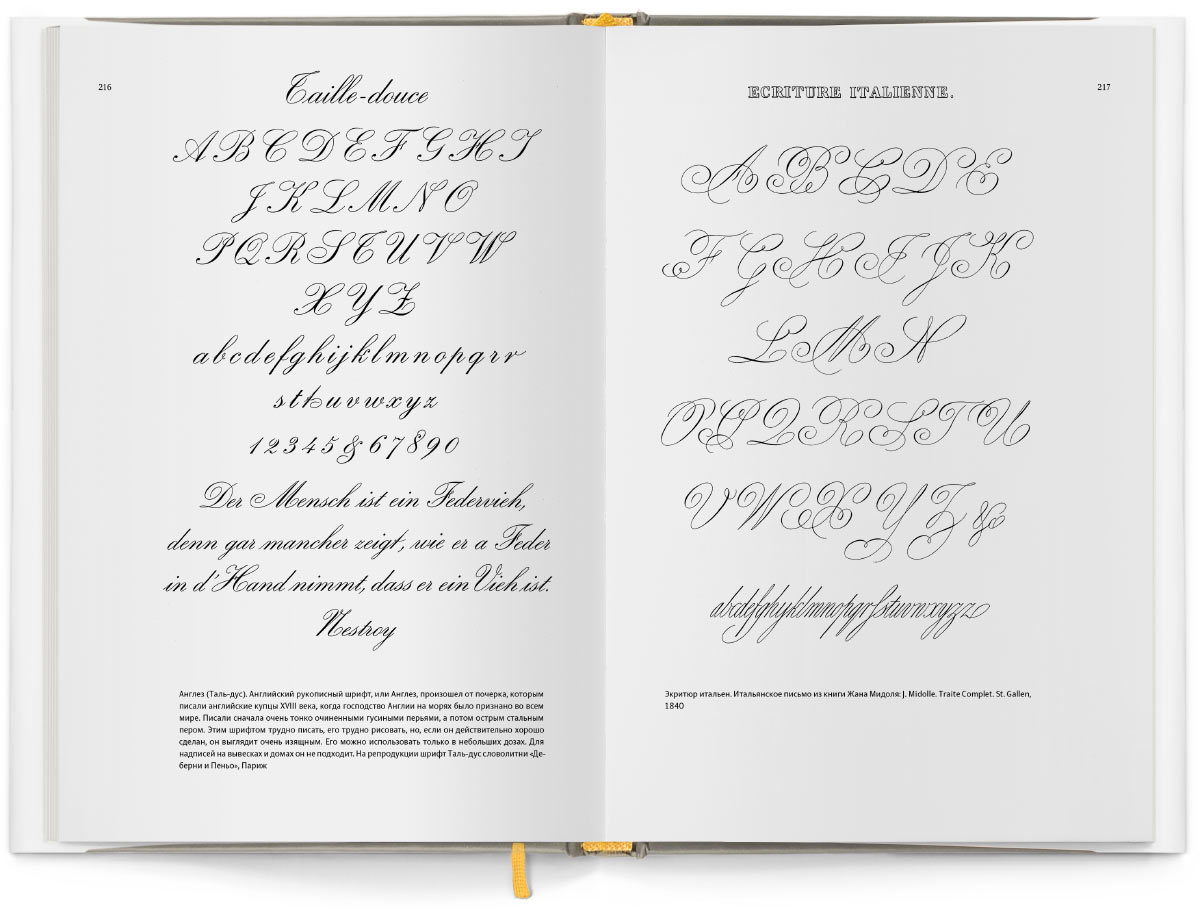 216
Taille-douce
A B C D E F G H I
J K L M N O
P Q R S T U V W
X Y Z
a b c d e f g h i j k l m n o p q r r
s t ß u v w x y z
1 2 3 4 5 & 6 7 8 9 0
Der Mensch ist ein Federvieh,
denn gar mancher zeigt, wie er a Feder
in d'Hand nimmt, dass er ein Vieh ist.
Nestroy
Англез (Таль-дус). Английский рукописный шрифт, или Англез, произошел от почерка, которым
писали английские купцы XVIII века, когда господство Англии на морях было признано во всем
мире. Писали сначала очень тонко очиненными гусиными перьями, а потом острым стальным
пером. Этим шрифтом трудно писать, его трудно рисовать, но, если он действительно хорошо
сделан, он выглядит очень изящным. Его можно использовать только в небольших дозах. Для
надписей на вывесках и домах он не подходит. На репродукции шрифт Таль-дус словолитни «Де-
берни и Пеньо», Париж
ECRITURE ITALIENNE.
217
A B C D E
F G H I J K
L M N
O P Q R S T U
V W X Y Z &
Экритюр итальен. Итальянское письмо из книги Жана Мидоля: J. Midolle. Traite Complet. St. Gallen,
1840